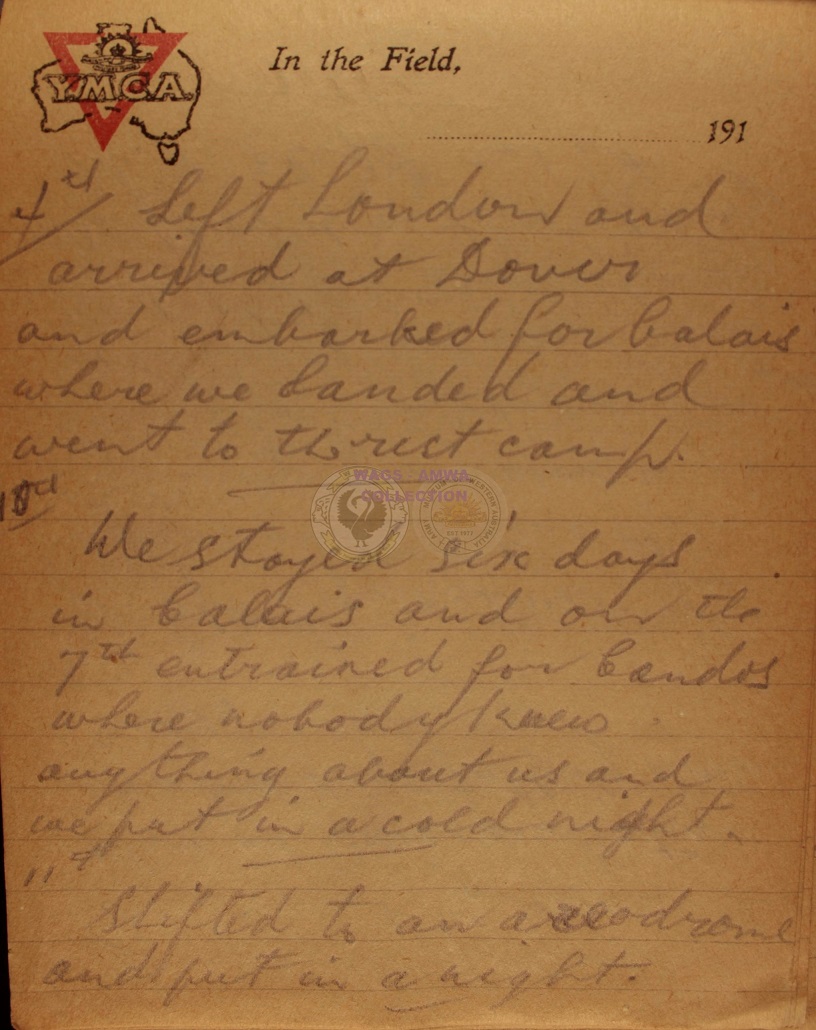 Y.M.C.A.
In the Field,
191
4th Left London and
arrived at Dover
and embarked for Calais
where we Landed and
went to the rest camp.
WAGS - AMWA
COLLECTION
10th
We stayed six days
in Calais and on the
7th entrained for Candos
where nobody knew
anything about us and
we put in a cold night.
11th
Shifted to an aerodrome
and put in a night.